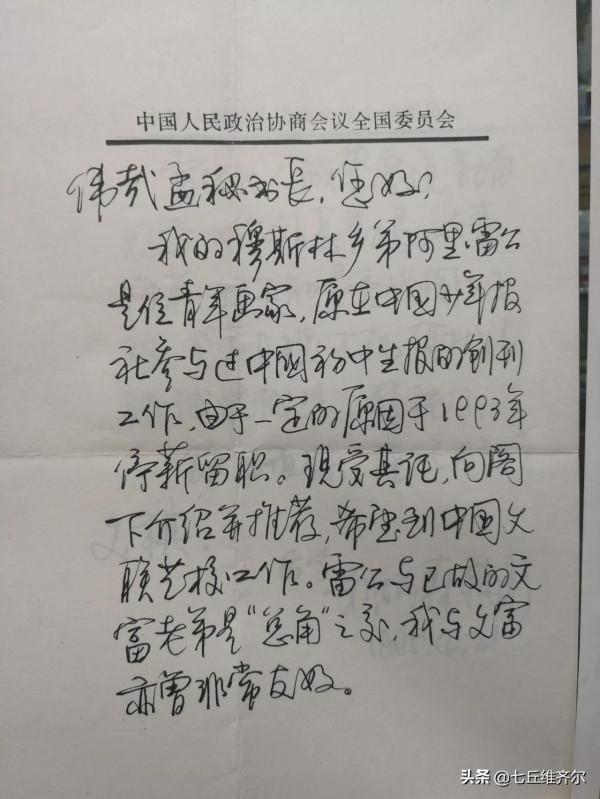 中国人民政治协商会议全国委员会
伟哉孟秘书长,您好!
我的穆斯林乡弟阿里·雷公
是位青年画家,原在中国少年报
社参与过中國初中生报的创刊
工作,由于一定的原因于1993年
停薪留职。现受其托,向阁
下介绍并推荐,希望到中国文
联艺校工作。雷公与已故的文
富老弟是“总角”之交,我与文富
亦曾非常友好。
头条 @七丘维齐尔